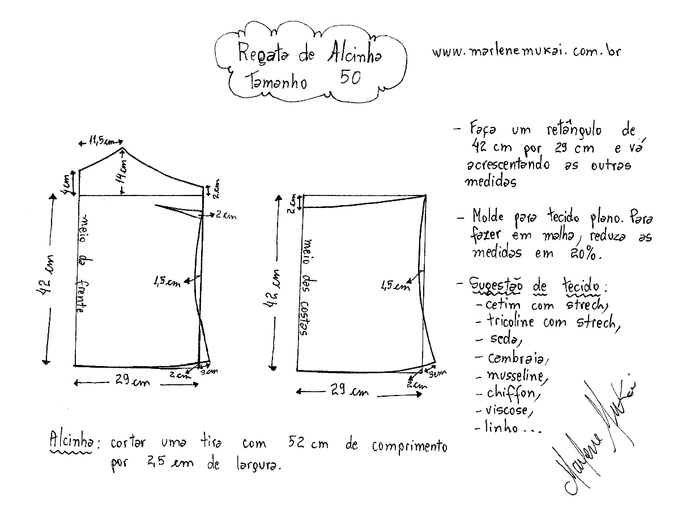 Regata de Alcinha
Tamanho 50
www.marlenemukai.com.br
11,5 cm
4 cm
14 cm
2 cm
2 cm
42 cm
meio da frente
1,5 cm
2 cm
3 cm
29 cm
2 cm
42 cm
meio das costas
1,5 cm
2 cm
3 cm
29 cm
- Faça um retângulo de
42 cm por 29 cm e vá
acrescentando as outras
medidas
- Molde para tecido plano. Para
fazer em malha, reduza as
medidas em 20%.
- Sugestão de tecido:
- cetim com strech,
- tricoline com strech,
- seda,
- cambraia,
- musseline,
- chiffon,
- viscose,
- linho...
Alcinha: cortar uma tira com 52 cm de comprimento
por 2,5 cm de largura.
Marlene Mukai